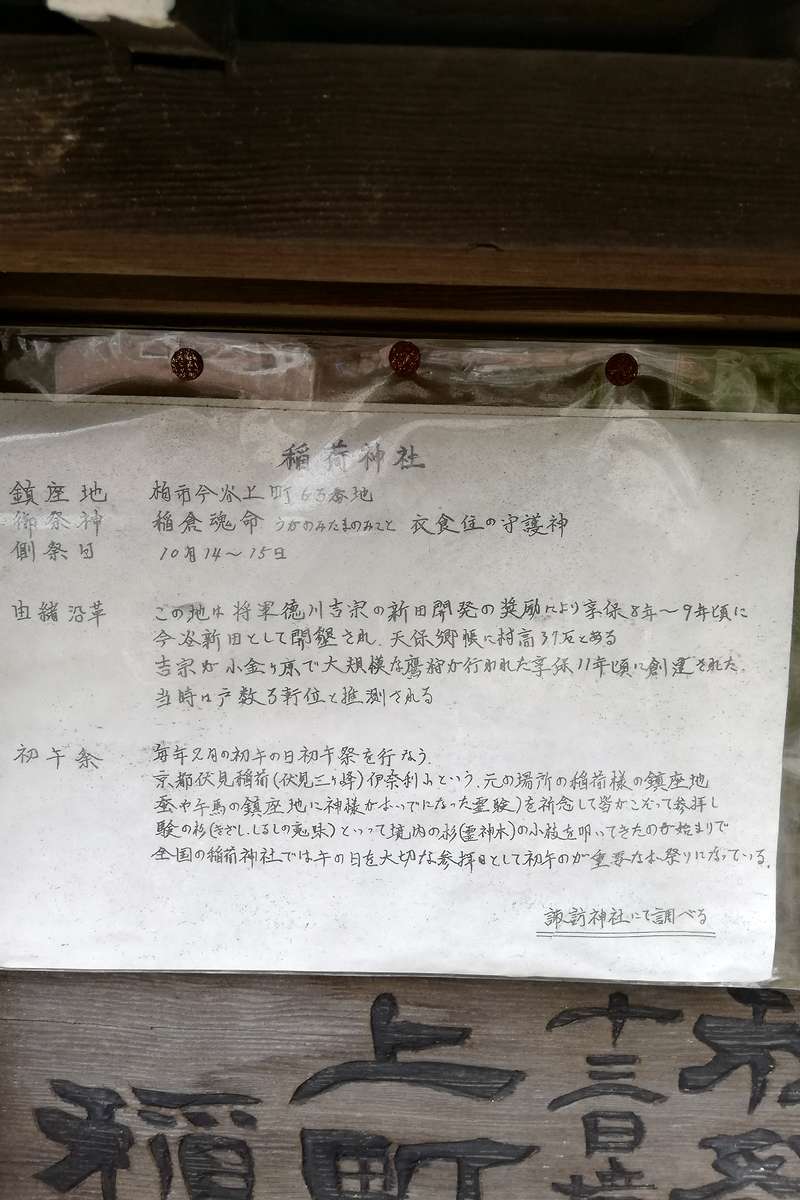 稲荷神社
鎮座地 柏市今谷上町63番地
御祭神 稲倉魂命 うかのみたまのみこと 衣食住の守護神
例祭日 10月14〜15日
由緒沿革 この地は将軍徳川吉宗の新田開発の奨励により享保8年〜9年頃に
今谷新田として開墾され、天保郷帳に村高37石とある
吉宗が小金ヶ原で大規模な鷹狩が行われた享保11年頃に創建された。
当時は戸数3軒位と推測される
初午祭 毎年2月の初午の日初午祭を行なう。
京都伏見稲荷(伏見三ヶ峰)伊奈利山という。元の場所の稲荷様の鎮座地
に神様がおいでになった霊験)を祈念して皆がこぞって参拝し
験の杉(きざし、しるしの意味)といって境内の杉(霊神木)の小枝を
きたのが始まりで
全国の稲荷神社では午の日を大切な参拝日として初午のが重要なお祭りになっている。
諏訪神社にて調べる
上 十三日
稲 町